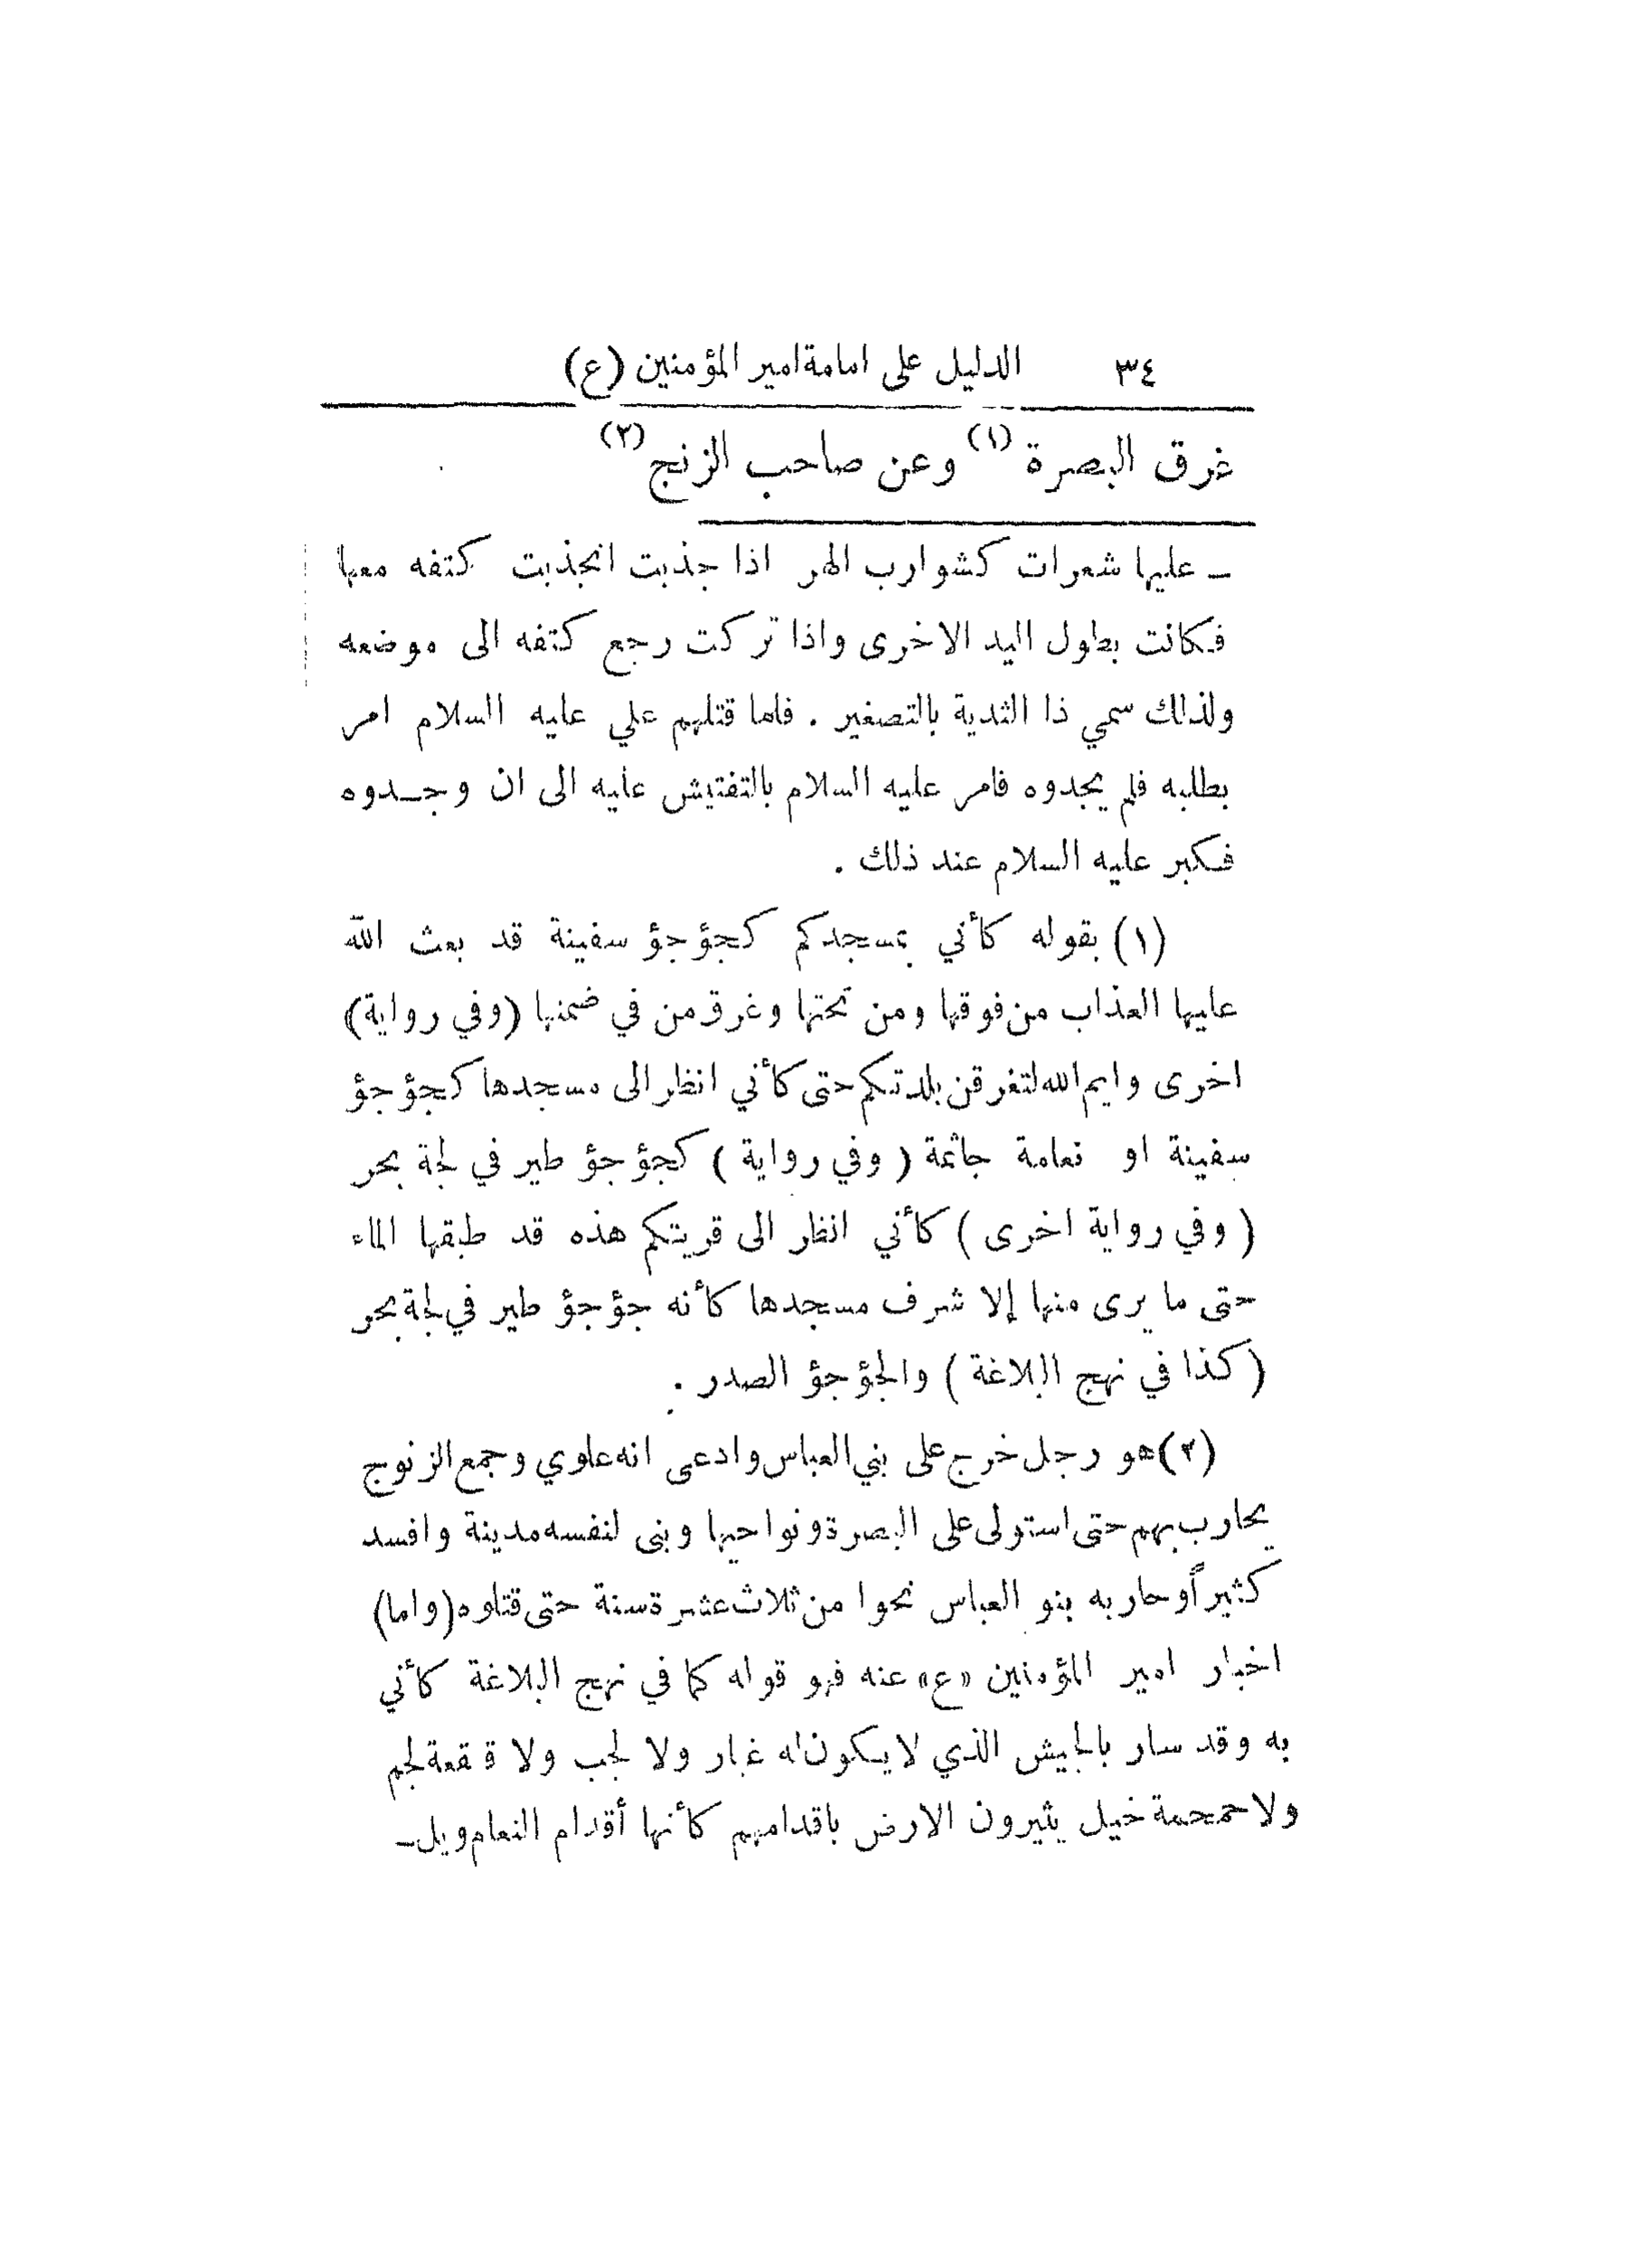 ٣٤ الدليل على امامة امير المؤمنين (ع)
غرق البصرة (١) وعن صاحب الزنج (٢)
ـ عليها شعرات كشوارب الهر اذا جذبت انجذبت كتفه معها
فكانت بطول اليد الاخرى واذا تركت رجع كتفه الى موضعه
ولذلك سمي ذا الثدية بالتصغير . فلما قتلهم علي عليه السلام امر
بطلبه فلم يجدوه فامر عليه السلام بالتفتيش عليه الى ان وجـدوه
فكبر عليه السلام عند ذلك .
(١) بقوله كأني بمسجدكم كجؤجؤ سفينة قد بعث الله
عليها العذاب من فوقها ومن تحتها وغرق من في ضمنها (وفي رواية)
اخرى وايم الله لتغرقن بلدتكم حتى كأني انظر الى مسجدها كجؤجؤ
سفينة او نعامة جاثمة ( وفي رواية ) كجؤجؤ طير في لجة بحر
( وفي رواية اخرى ) كأني انظر الى قريتكم هذه قد طبقها الماء
حتى ما يرى منها إلا شرف مسجدها كأنه جؤجؤ طير في لجة بحر
( كذا في نهج البلاغة ) والجؤجؤ الصدر .
(٢) هو رجل خرج على بني العباس وادعى انه علوي وجمع الزنوج
يحارب بهم حتى استولى على البصرة ونواحيها وبنى لنفسه مدينة وافسد
كثيراً وحاربه بنو العباس نحوا من ثلاث عشرة سنة حتى قتلوه (واما)
اخبار امير المؤمنين «ع» عنه فهو قوله كما في نهج البلاغة كأني
به وقد سار بالجيش الذي لا يكون له غبار ولا لجب ولا قعقعة لجم
ولا حمحمة خيل يثيرون الارض باقدامهم كأنها أقدام النعام ويل ـ